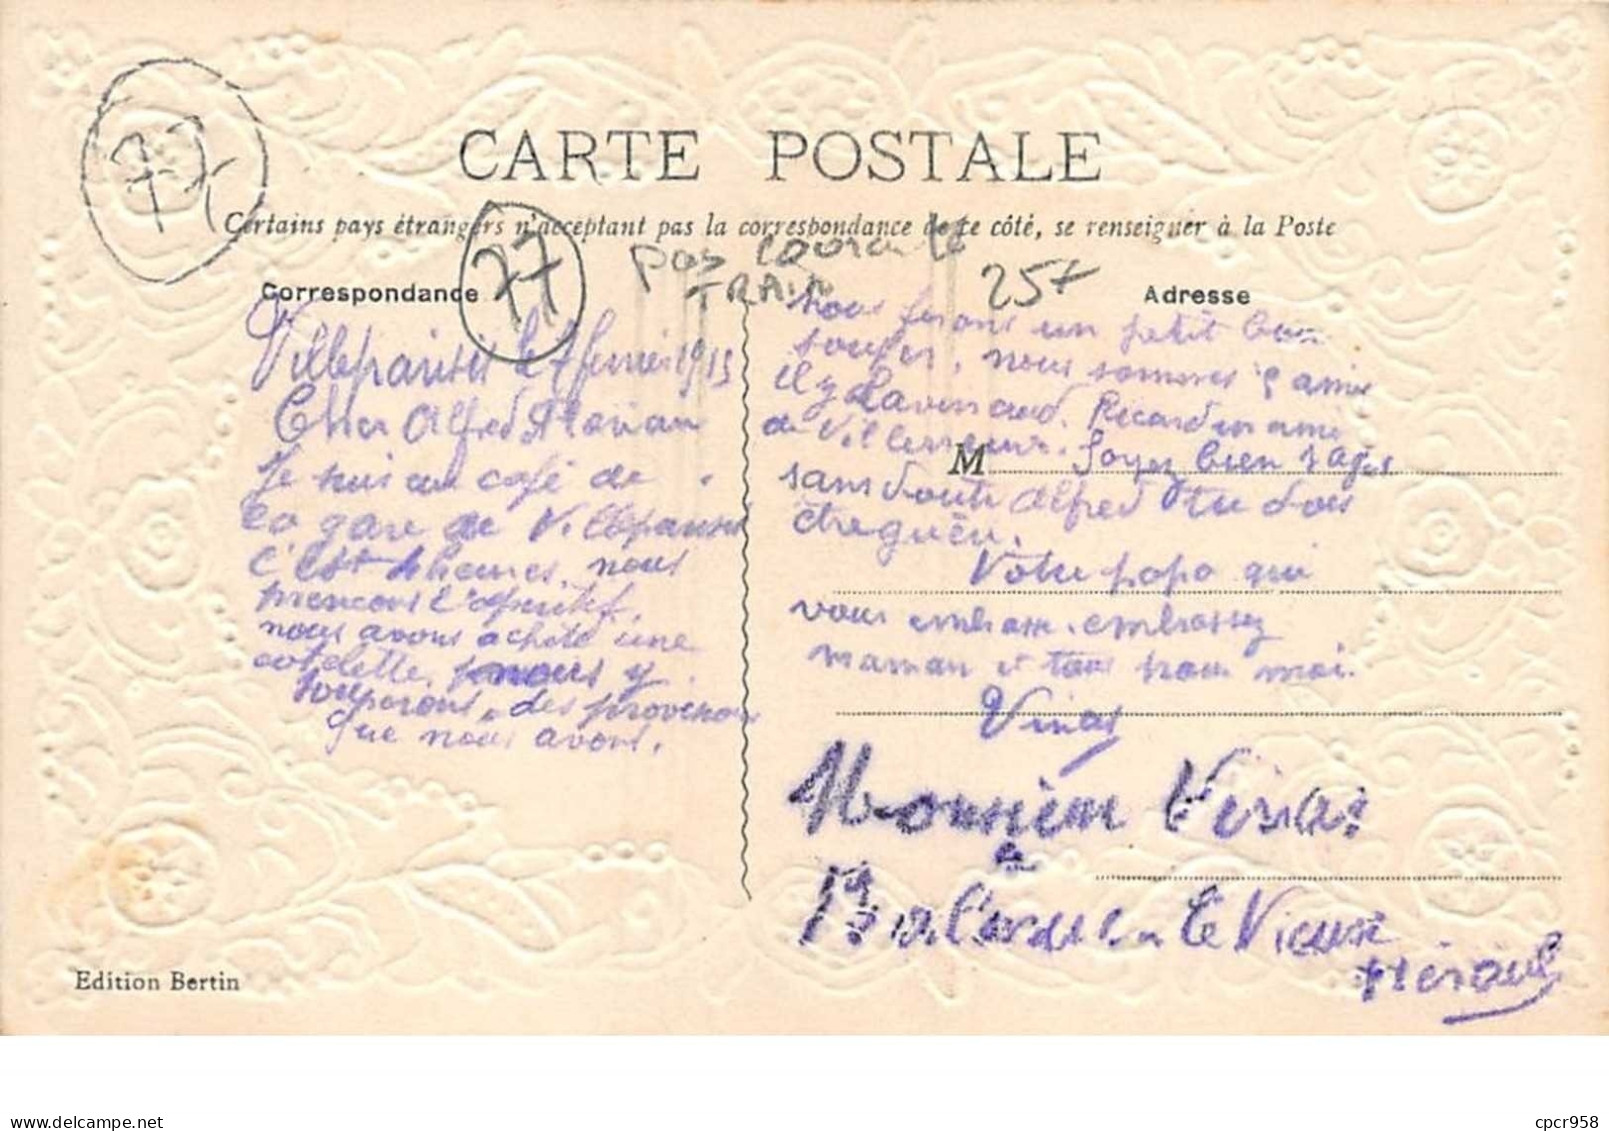 77
CARTE POSTALE
Certains pays étrangers n'acceptent pas la correspondance de ce côté, se renseigner à la Poste
77
pas courante
TRAIN
25F
Correspondance
Adresse
Villeparisis le février 1915
Cher Alfred
Je suis au café de
la gare de Villeparisis
c'est 4 heures, nous
prenons l'aperitif,
nous avons acheté une
cotelette, nous y
souperons, des provisions
que nous avons.
nous ferons un petit bon
souper, nous sommes 5 amis
il y a Ricard un ami
de Soyez bien sages
M
sans doute Alfred tu dois
être guéri.
Votre papa qui
vous embrasse. embrassez
maman et tous pour moi.
Vinas
Monsieur Vinas
à
Le Vieux
Hérault
Edition Bertin
www.delcampe.net
cpcr958